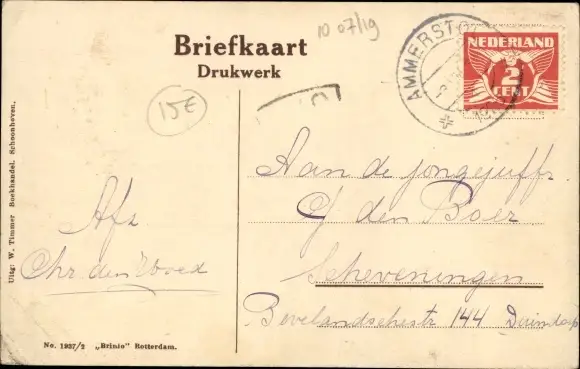 10 07/19
Briefkaart
Drukwerk
AMMERSTO
NEDERLAND
2
CENT
15€
Aan de jongejuffr.
C/ den Boer
Scheveningen
Bevelandschestr 144 Duindorp
Afz
Chr den
Uitg: W. Timmer Boekhandel. Schoonhoven.
No. 1937/2 „Brinio" Rotterdam.